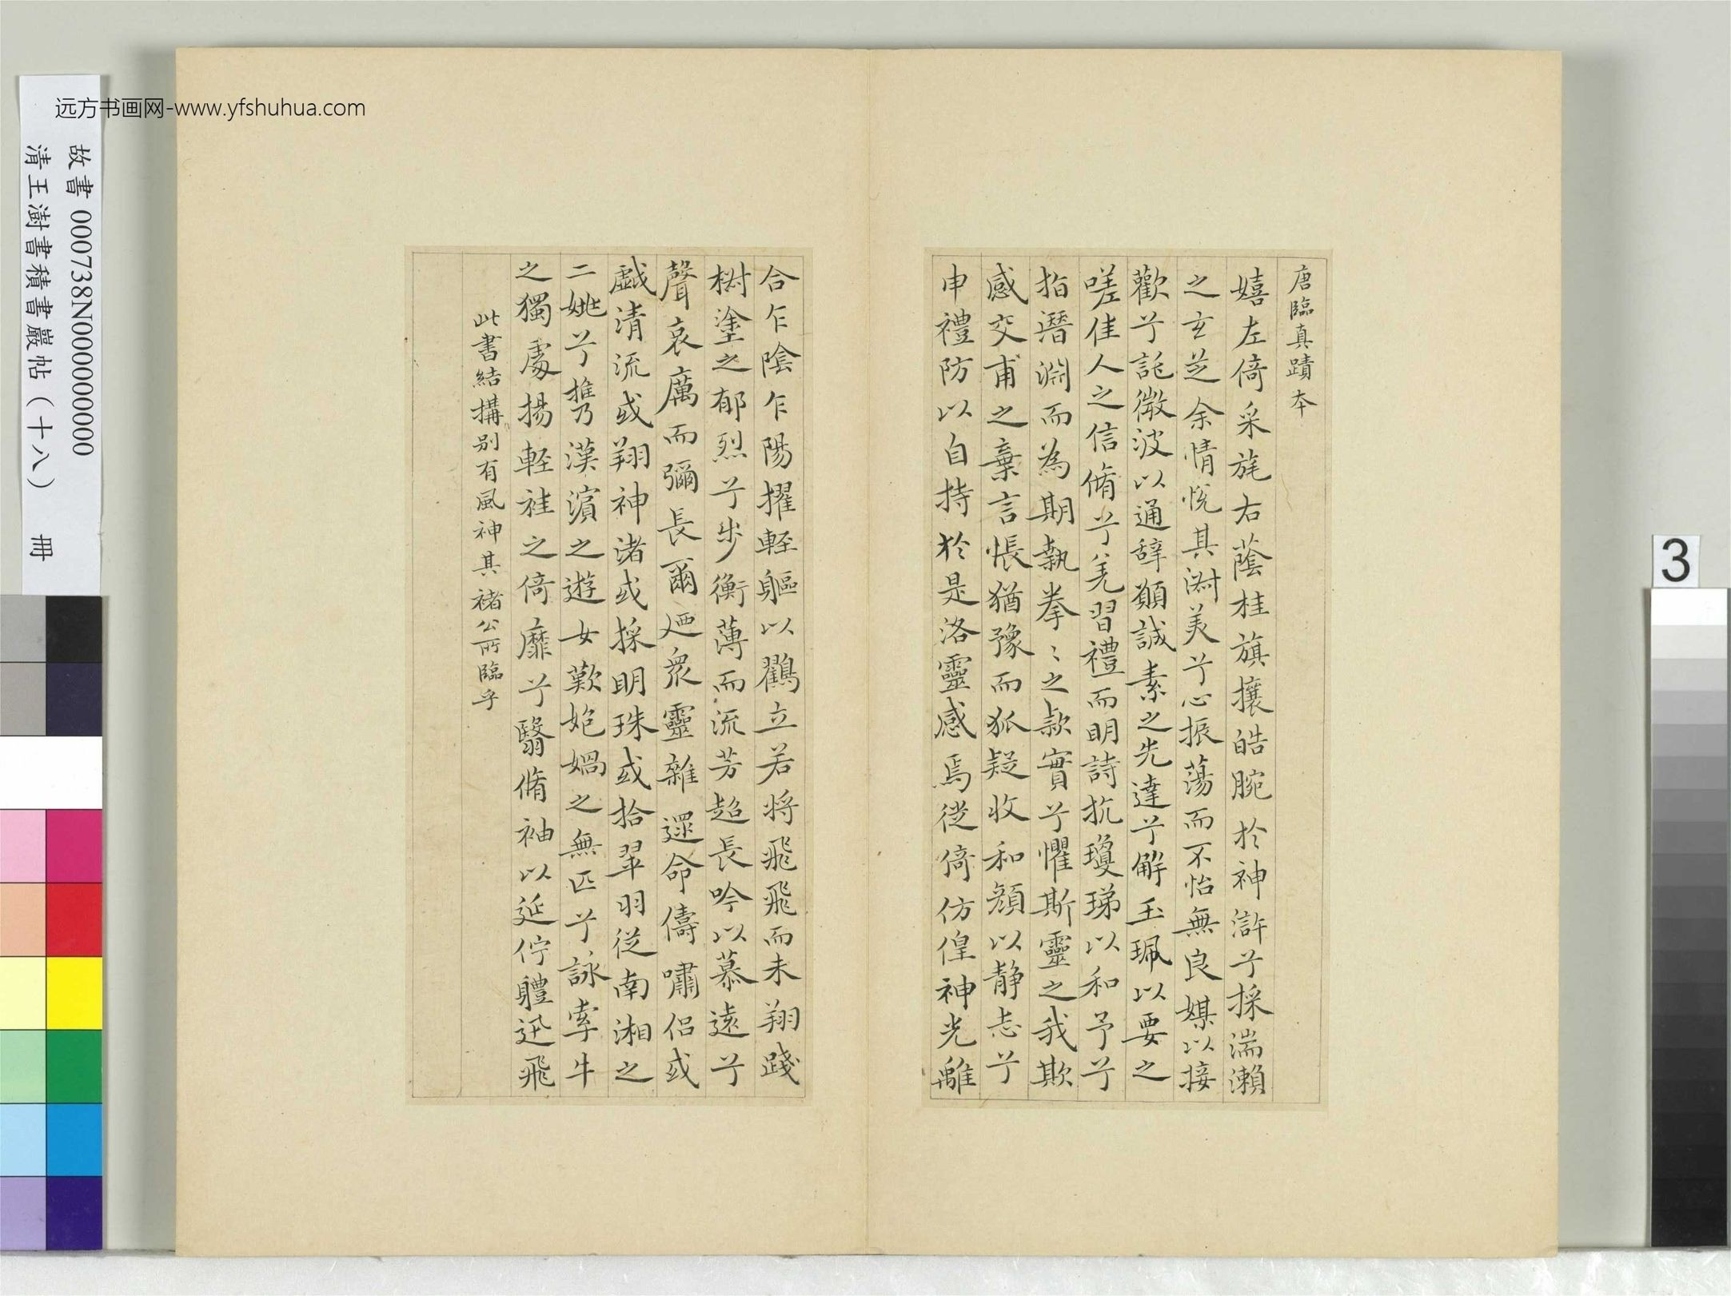 远方书画网-www.yfshuhua.com
故書 000738N000000000
清王澍書積書巖帖（十八） 冊
3
唐臨真蹟本
嬉左倚采旄右蔭桂旗攘皓腕於神滸兮採湍瀨
之玄芝余情悅其淑美兮心振蕩而不怡無良媒以接
歡兮託微波以通辞願誠素之先達兮解玉珮以要之
嗟佳人之信脩兮羌習禮而明詩抗瓊珶以和予兮
指潛淵而為期執拳〻之款實兮懼斯靈之我欺
感交甫之棄言悵猶豫而狐疑收和顔以静志兮
申禮防以自持於是洛靈感焉徙倚仿偟神光離
合乍陰乍陽擢軽軀以鸛立若将飛飛而未翔踐
樹塗之郁烈兮步衡薄而流芳超長吟以慕遠兮
聲哀厲而彌長爾迺衆靈雜遝命儔嘯侣或
戯清流或翔神渚或採明珠或拾翠羽従南湘之
二姚兮攜漢濵之遊女歎媧之無匹兮詠牽牛
之獨處揚軽袿之倚靡兮翳脩袖以延佇軆迅飛
此書結搆別有風神其褚公所臨乎